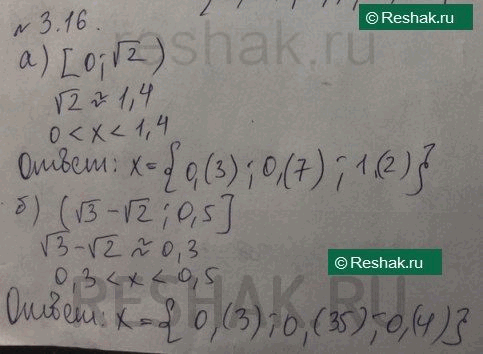 Reshak.ru
№ 3.16.
а) [0; √2)
√2 ≈ 1,4
0 < x < 1,4
Ответ: x = {0,(3); 0,(7); 1,(2)}
б) (√3 - √2; 0,5]
√3 - √2 ≈ 0,3
Reshak.ru
0,3 < x < 0,5
RESHAK.RU
Ответ: x = {0,(3); 0,(35); 0,(4)}